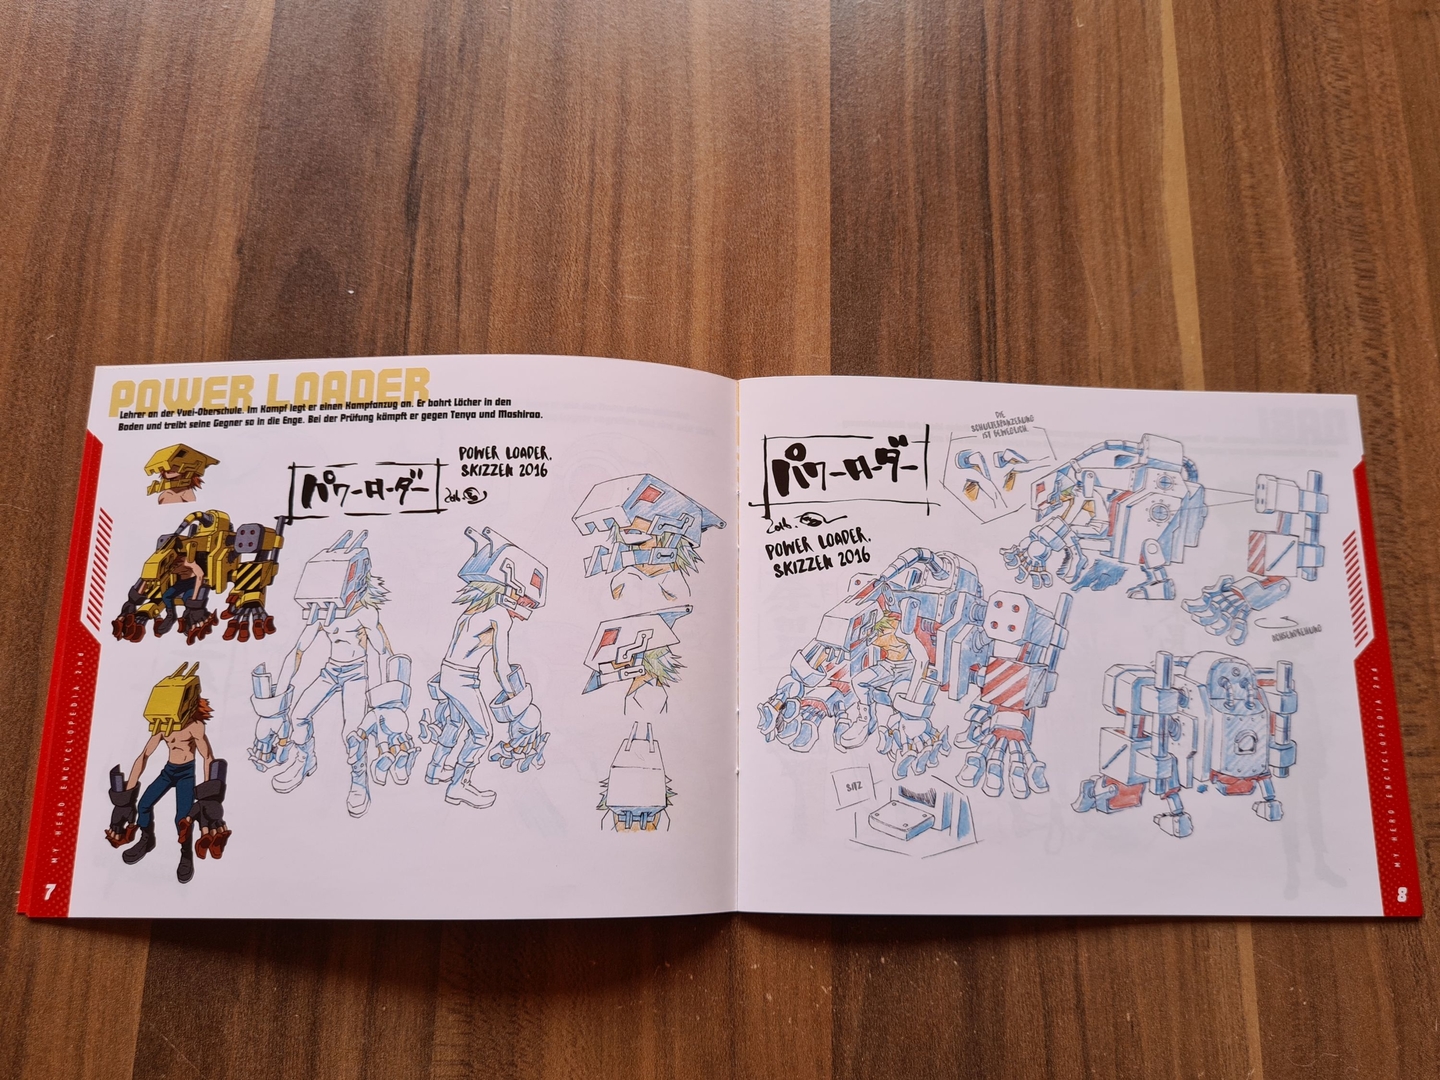 POWER LOADER
Lehrer an der Yuei-Oberschule. Im Kampf legt er einen Kampfanzug an. Er bohrt Löcher in den
Boden und treibt seine Gegner so in die Enge. Bei der Prüfung kämpft er gegen Tenya und Mashirao.
パワーローダー
2016.
POWER LOADER,
SKIZZEN 2016
MY HERO ENCYCLOPEDIA 2nd
7
パワーローダー
2016.
POWER LOADER,
SKIZZEN 2016
DIE
SCHULTERPANZERUNG
IST BEWEGLICH.
SITZ
MY HERO ENCYCLOPEDIA 2nd
8